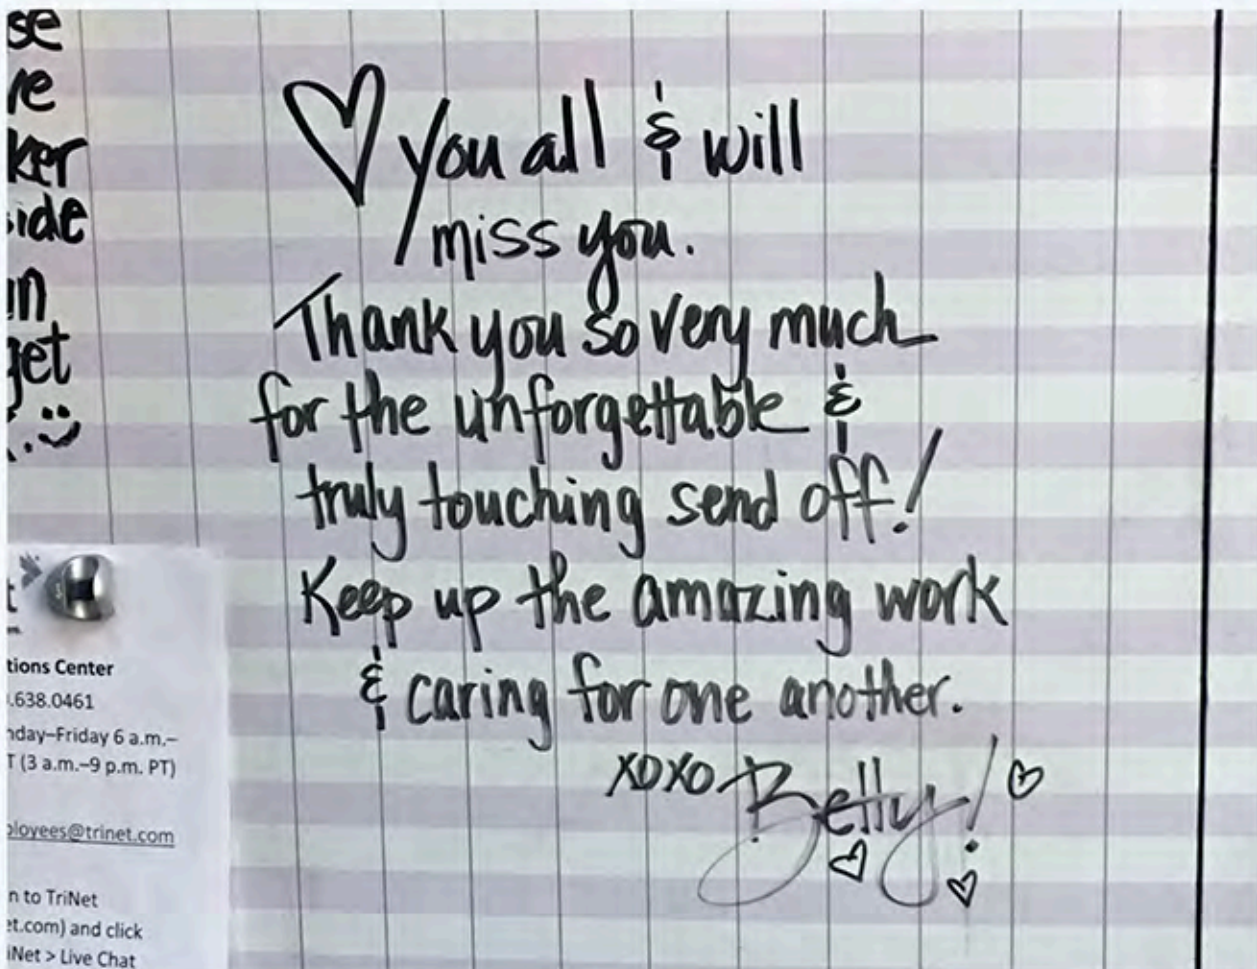 se
re
ker
side
in
get
♡ you all & will
miss you.
Thank you so very much
for the unforgettable &
truly touching send off!
Keep up the amazing work
& caring for one another.
xoxo Betty!
tions Center
.638.0461
nday–Friday 6 a.m.–
T (3 a.m.–9 p.m. PT)
ployees@trinet.com
n to TriNet
et.com) and click
iNet > Live Chat